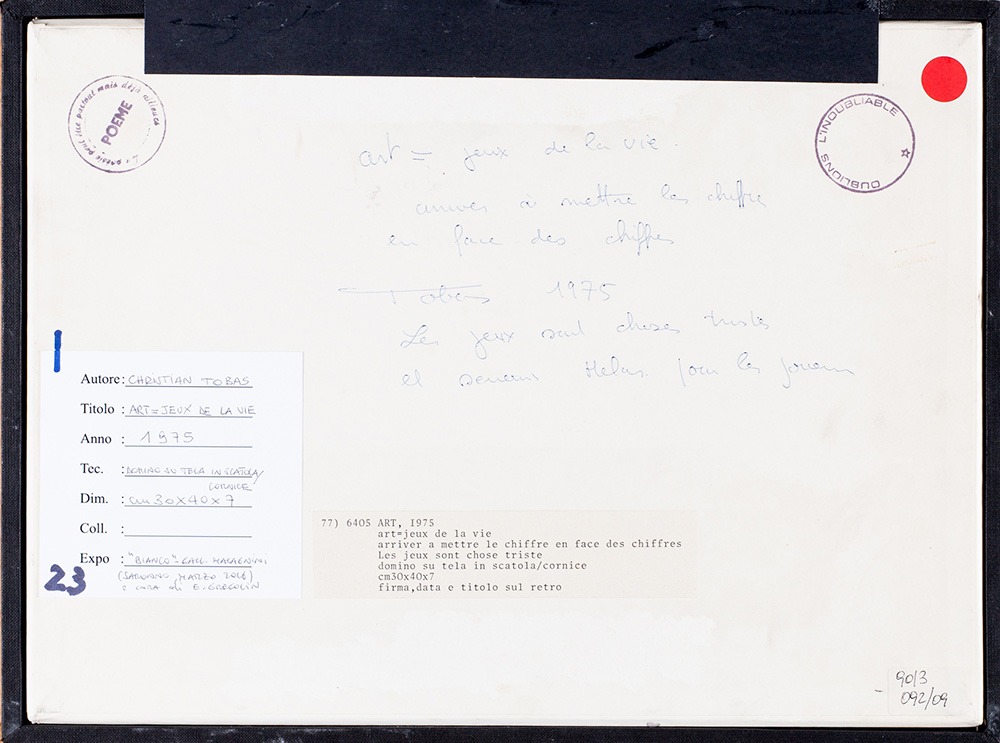 La poésie peut être partout mais déjà ailleurs
POEME
OUBLIONS L'INOUBLIABLE
art = jeux de la vie.
arriver à mettre les chiffre
en face des chiffres
Tobas 1975
Les jeux sont choses tristes
et Helas pour les joueurs
Autore: CHRISTIAN TOBAS
Titolo : ART=JEUX DE LA VIE
Anno : 1975
Tec. : DOMINO SU TELA IN SCATOLA/
CORNICE
Dim. : cm 30x40x7
Coll. :
Expo : "BIANCO"
MARZO
a cura di E. GREGOLIN
23
77) 6405 ART, I975
art=jeux de la vie
arriver a mettre le chiffre en face des chiffres
Les jeux sont chose triste
domino su tela in scatola/cornice
cm30x40x7
firma,data e titolo sul retro
90/3
092/09